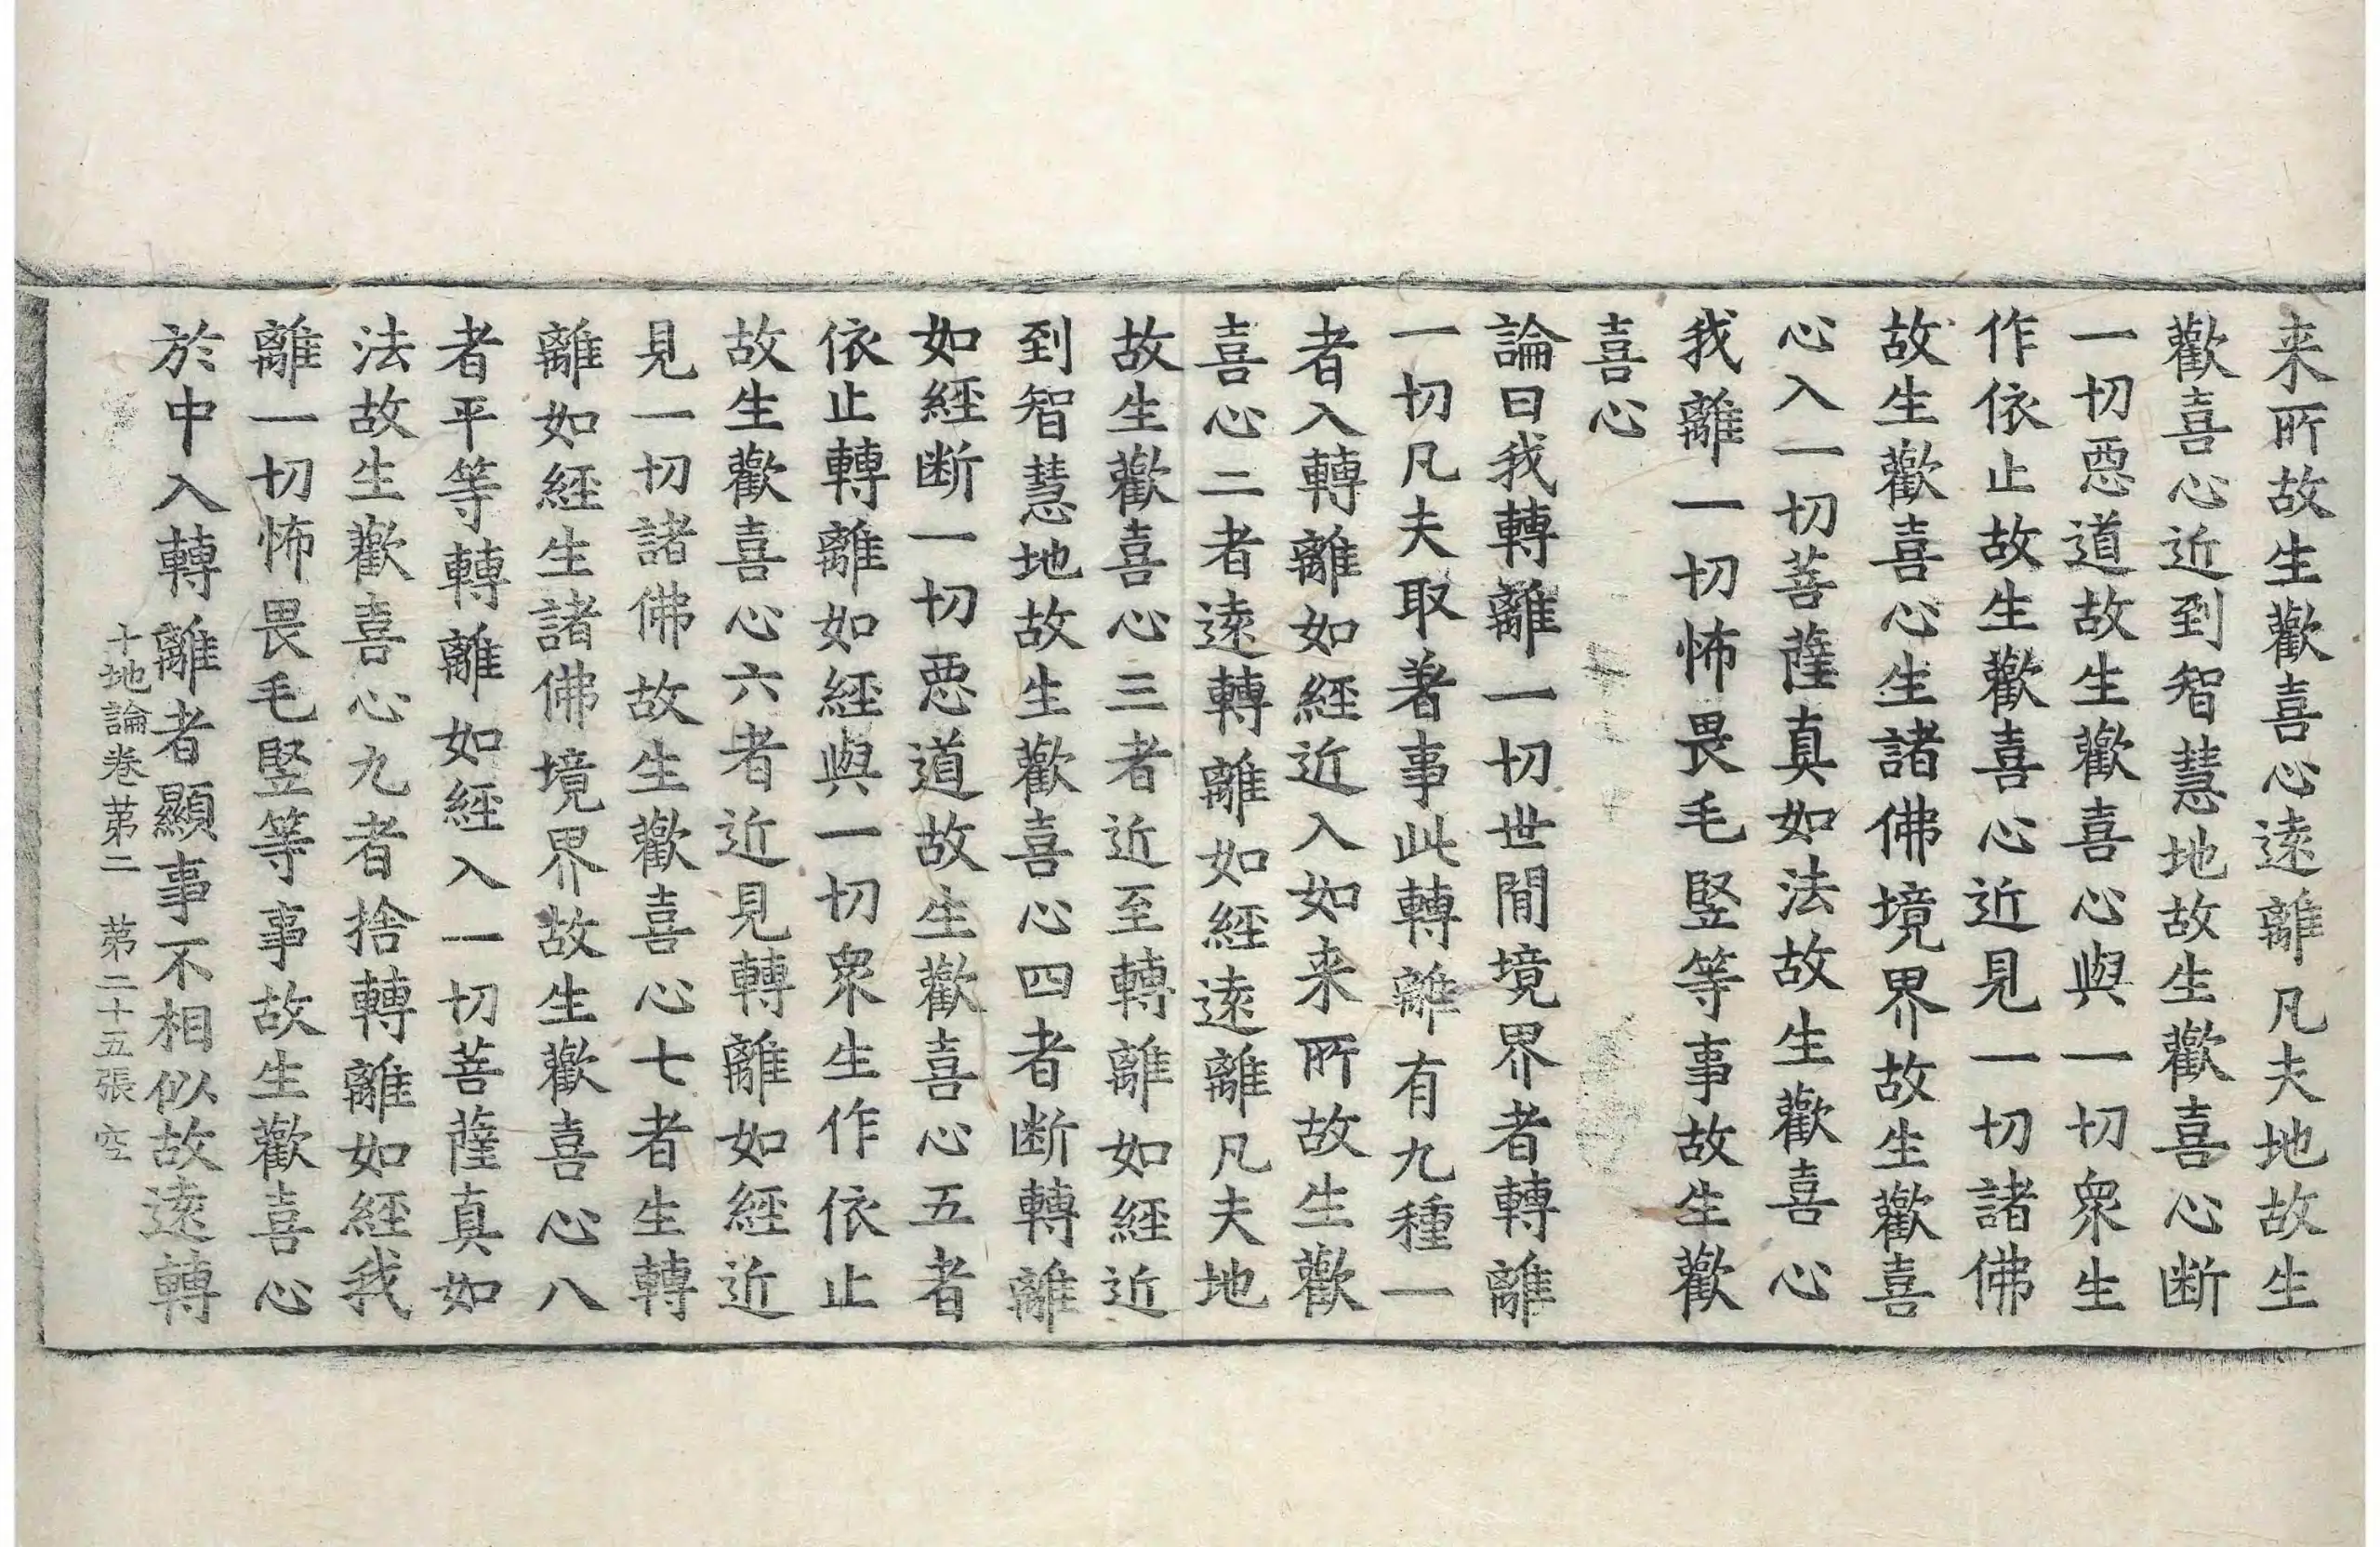 来所故生歡喜心遠離凡夫地故生
歡喜心近到智慧地故生歡喜心断
一切惡道故生歡喜心與一切衆生
作依止故生歡喜心近見一切諸佛
故生歡喜心生諸佛境界故生歡喜
心入一切菩薩真如法故生歡喜心
我離一切怖畏毛竪等事故生歡
喜心
論曰我轉離一切世間境界者轉離
一切凡夫取著事此轉離有九種一
者入轉離如經近入如来所故生歡
喜心二者遠轉離如經遠離凡夫地
故生歡喜心三者近至轉離如經近
到智慧地故生歡喜心四者断轉離
如經断一切惡道故生歡喜心五者
依止轉離如經與一切衆生作依止
故生歡喜心六者近見轉離如經近
見一切諸佛故生歡喜心七者生轉
離如經生諸佛境界故生歡喜心八
者平等轉離如經入一切菩薩真如
法故生歡喜心九者捨轉離如經我
離一切怖畏毛竪等事故生歡喜心
於中入轉離者顯事不相似故遠轉
十地論卷第二 第二十五張 空